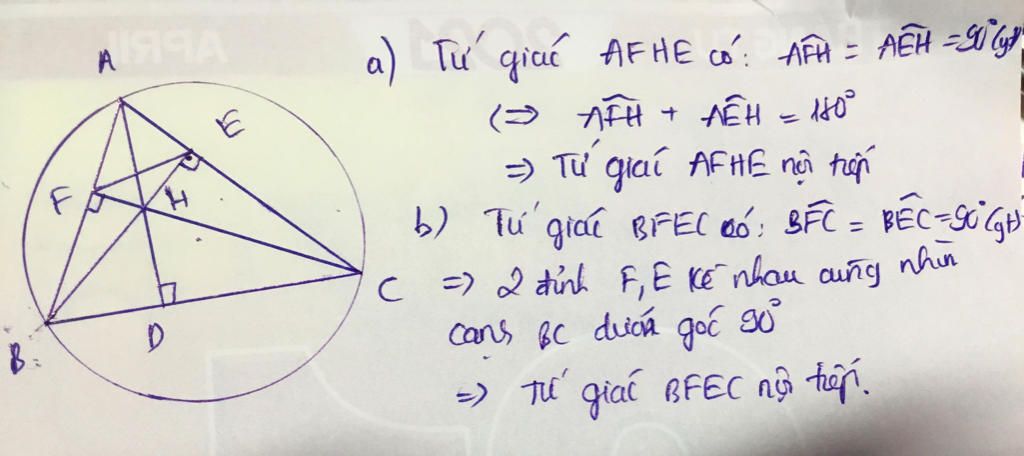 A
E
F
H
C
D
B
a) Tứ giác AFHE có: AF̂H = AÊH = 90° (gt)
<=> AF̂H + AÊH = 180°
=> Tứ giác AFHE nội tiếp
b) Tứ giác BFEC có: BF̂C = BÊC = 90° (gt)
=> 2 đỉnh F, E kề nhau cùng nhìn
cạnh BC dưới góc 90°
=> Tứ giác BFEC nội tiếp.
APRIL
2021